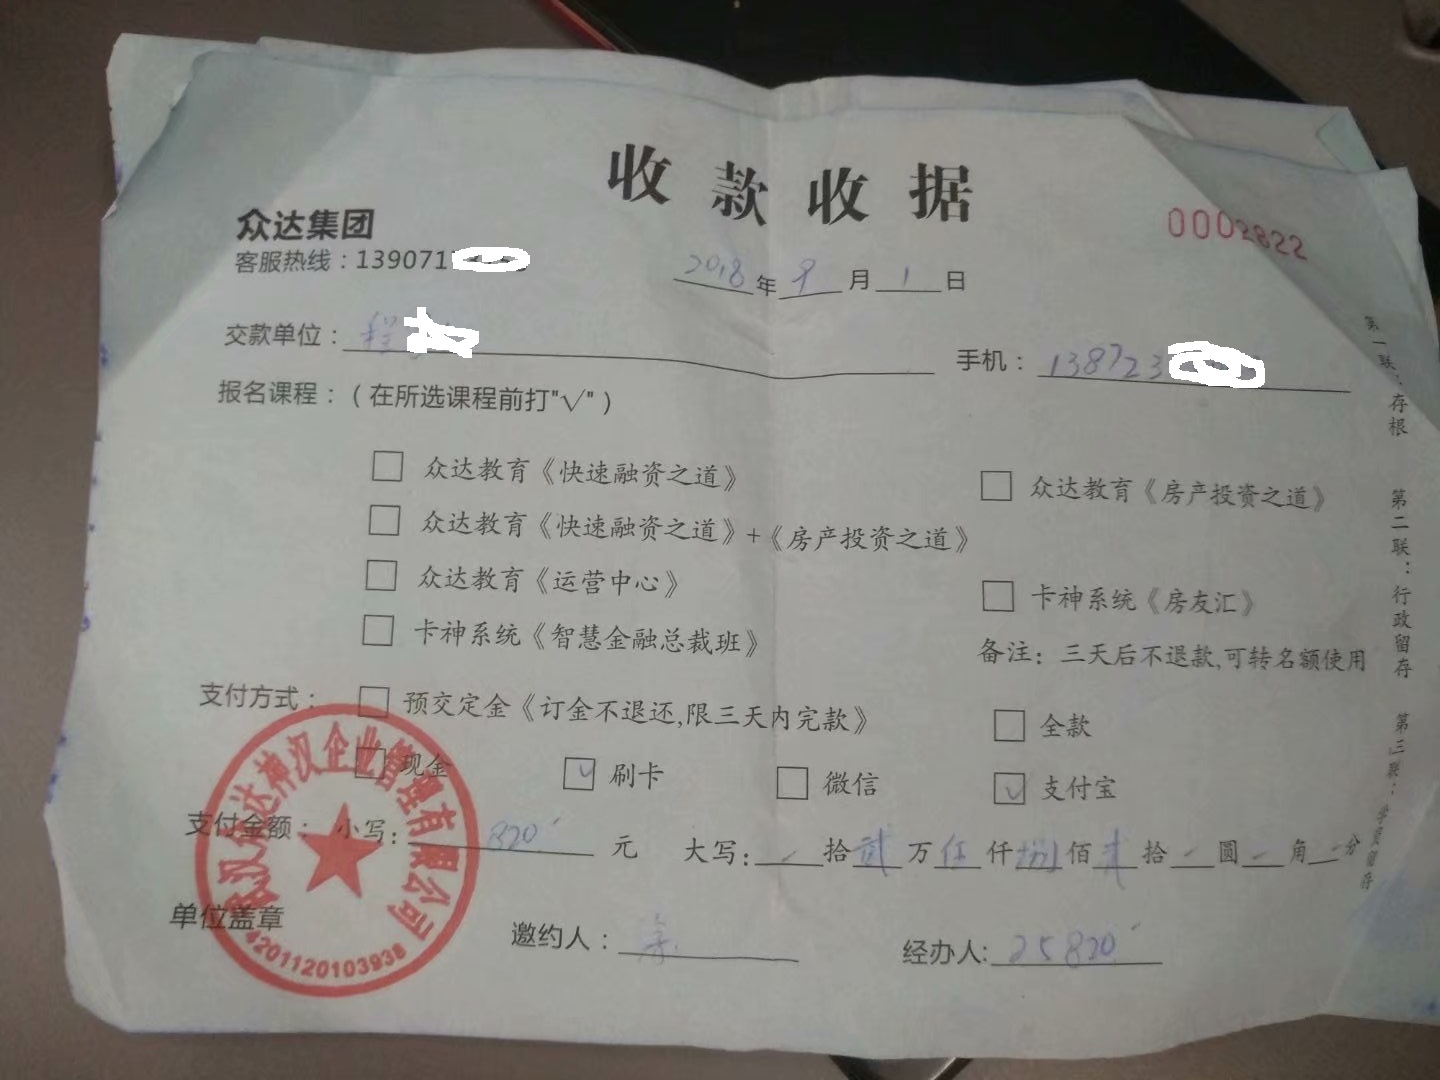 收款收据
0002822
众达集团
客服热线：139071
2018年9月1日
交款单位：程
手机：138723
报名课程：（在所选课程前打"√"）
□ 众达教育《快速融资之道》 □ 众达教育《房产投资之道》
□ 众达教育《快速融资之道》+《房产投资之道》
□ 众达教育《运营中心》 □ 卡神系统《房友汇》
□ 卡神系统《智慧金融总裁班》
备注：三天后不退款,可转名额使用
支付方式：□ 预交定金《订金不退还,限三天内完款》 □ 全款
□ 现金 ☑ 刷卡 □ 微信 ☑ 支付宝
支付金额：小写：820 元 大写：拾贰万伍仟捌佰贰拾圆角分
单位盖章 邀约人： 经办人：25820
达神汉企业管理有限公司
4201120103938
第一联：存根 第二联：行政留存 第三联：学员留存